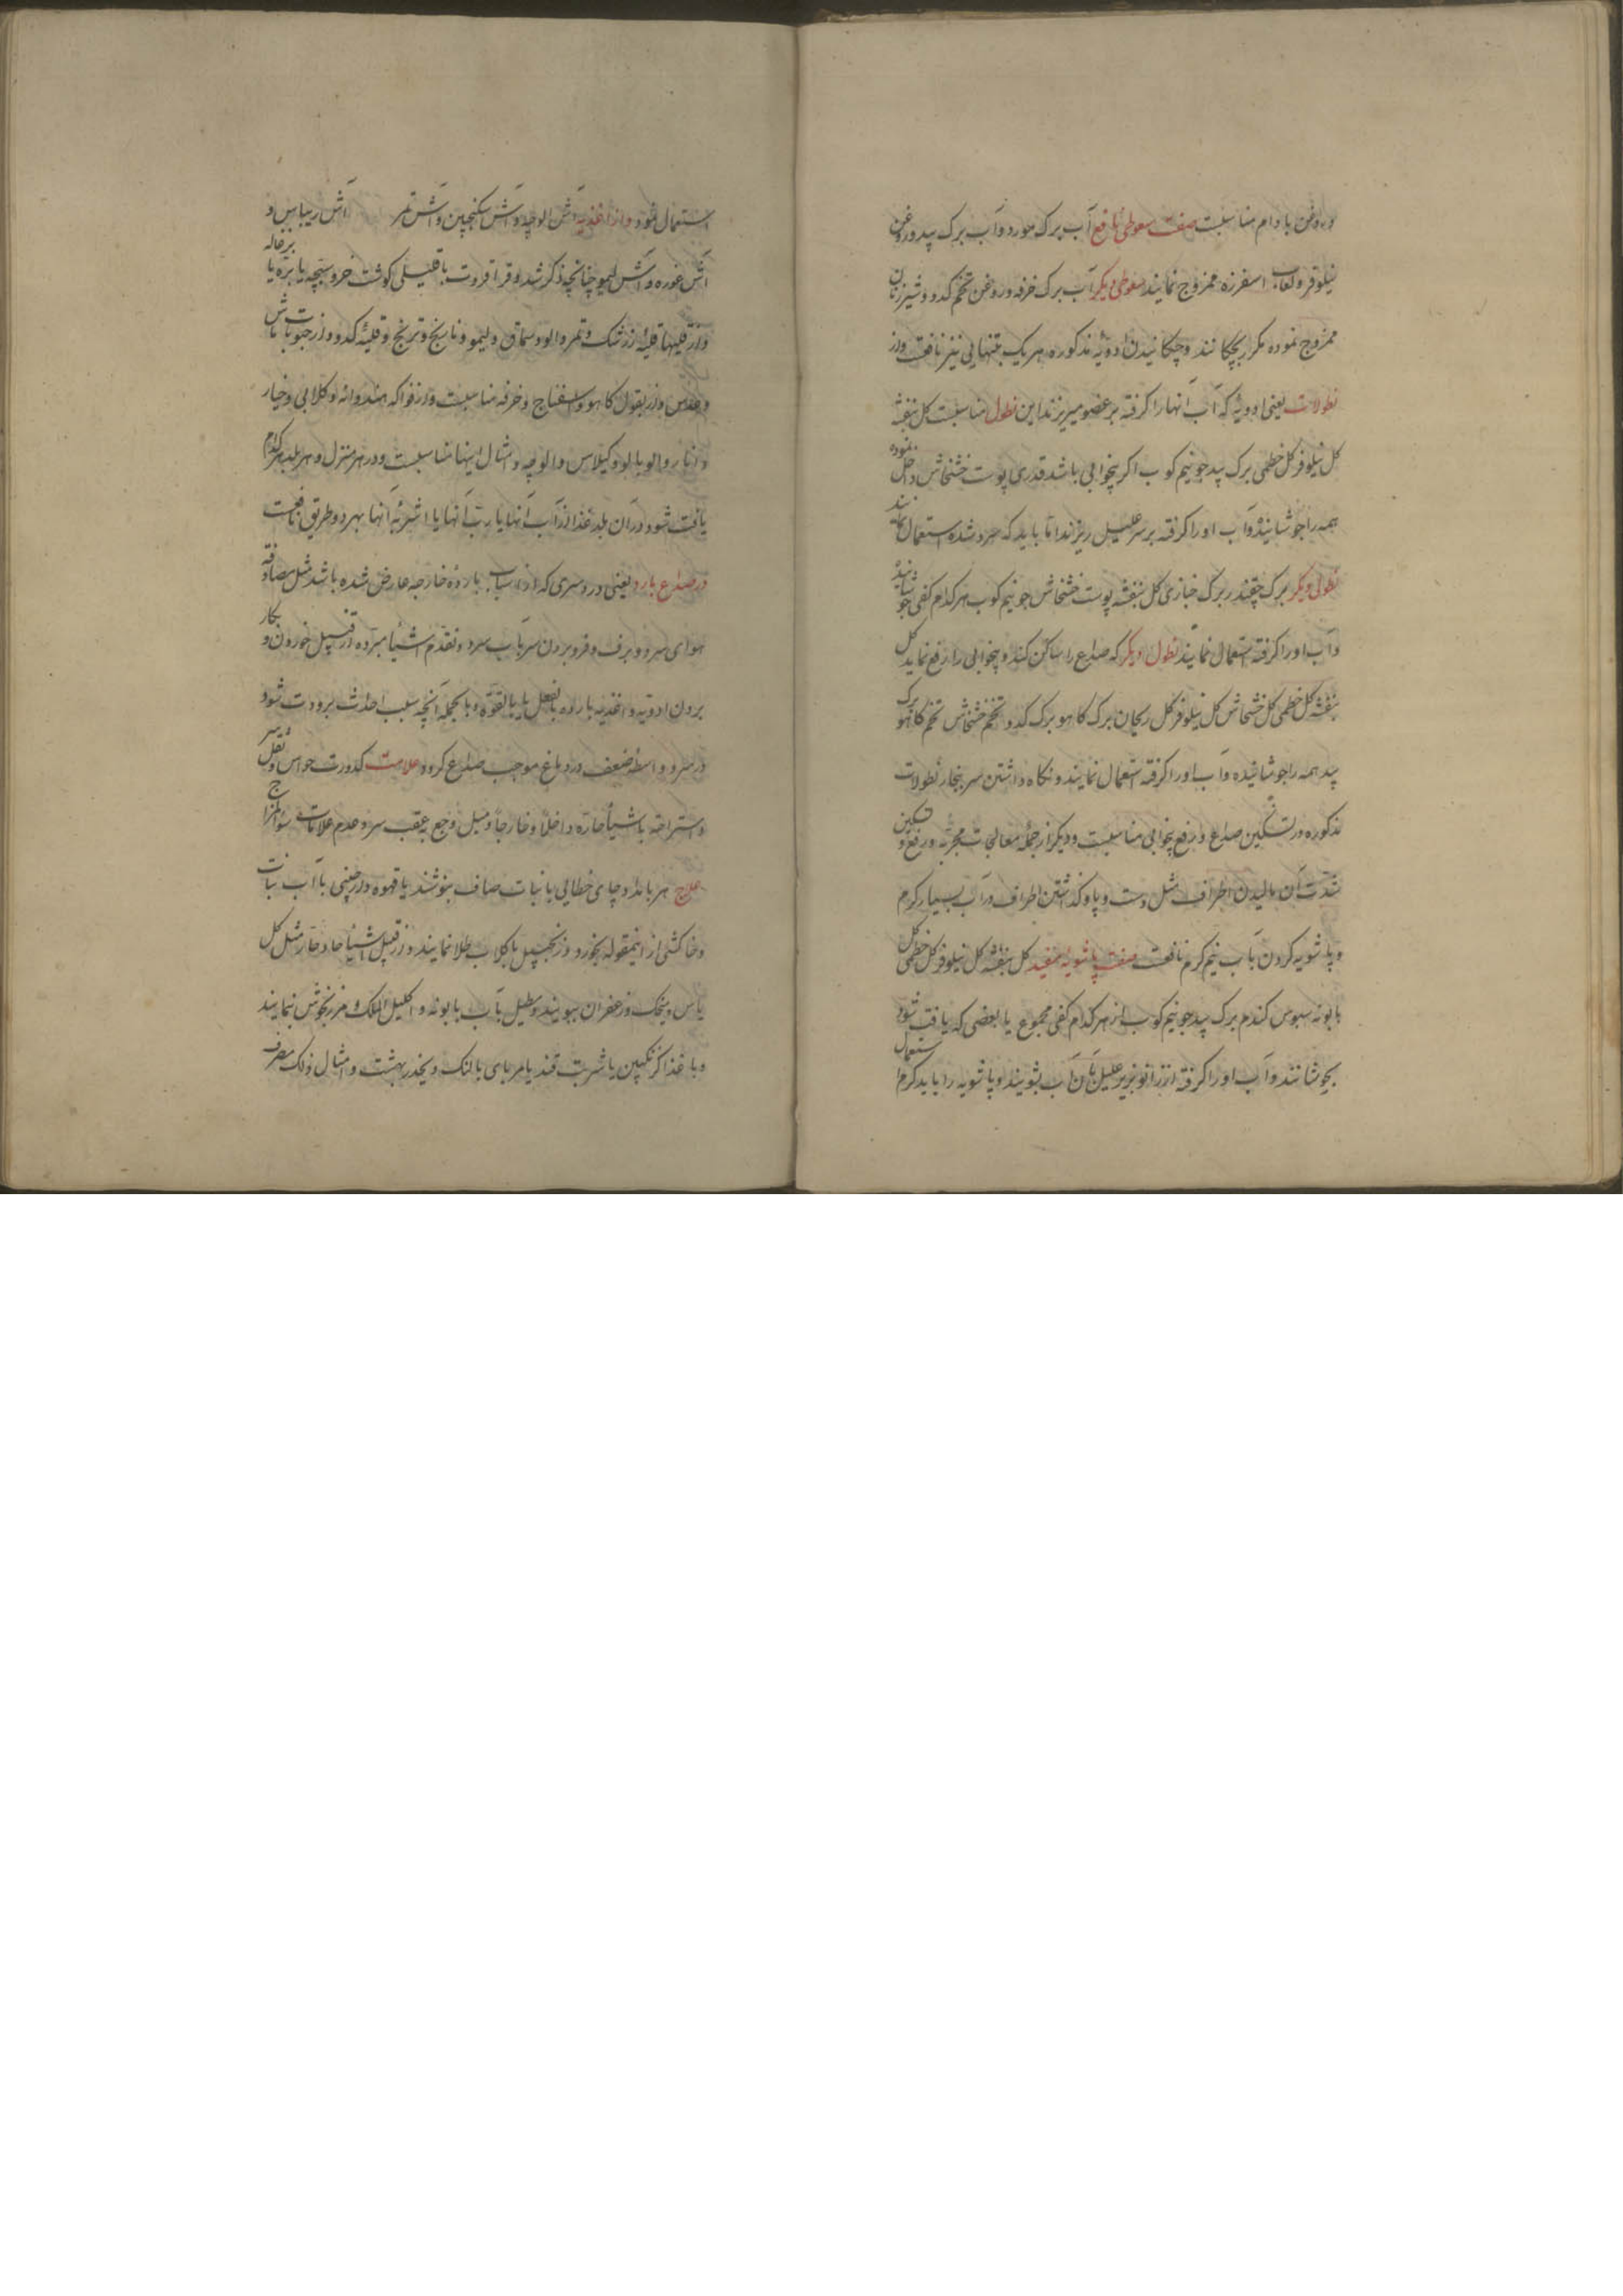 و روغن بادام مناسبست صفت سعوطی نافع آب برک مورد و آب برک بید و روغن
نیلوفر و لعاب اسفرزه ممزوج نمایند سعوطی دیکر آب برک خرفه و روغن تخم کدو و شیر زنان
ممزوج نموده مکرر بچکانند و چکانیدن ادویهٔ مذکوره هر یک بتنهایی نیز نافعست و از
نطولات یعنی ادویهٔ که آب آنها را کرفته بر عضو میریزند این نطول مناسبست کل بنفشه
کل نیلوفر کل خطمی برک بید جو نیم کوب اکر بیخوابی باشد قدری پوست خشخاش داخل نموده
همه را جوشانیده و آب او را کرفته بر سر علیل ریزند اما باید که سرد شده استعمال نمایند
نطولی دیکر برک چقندر برک خبازی کل بنفشه پوست خشخاش جو نیم کوب هر کدام کفی جوشانیده
و آب او را کرفته استعمال نمایند نطول دیکر که صداع را ساکن کند و بیخوابی را رفع نماید کل
بنفشه کل خطمی کل خشخاش کل نیلوفر کل ریحان برک کاهو برک کدو تخم خشخاش تخم کاهو برک
بید همه را جوشانیده و آب او را کرفته استعمال نمایند و نکاه داشتن سر ببخار نطولات
مذکوره در تسکین صداع و رفع بیخوابی مناسبست و دیکر از جملهٔ معالجات مجربه در رفع و تسکین
شدت آن مالیدن اطراف مثل دست و پا و کذاشتن اطراف در آب بسیار کرم
و پاشویه کردن بآب نیم کرم نافعست صفت پاشویهٔ مفید کل بنفشه کل نیلوفر کل خطمی کل
بابونه سبوس کندم برک بید جو نیم کوب از هر کدام کفی مجموع یا بعضی که یافت شود
بجوشانند و آب او را کرفته از زانو بزیر علیل بآن آب بشویند و پاشویه را باید کرم استعمال
استعمال نمود و از اغذیه آش الوچه و آش سکنجبین و آش تمر آش ریباس و
آش غوره و آش لیمو چنانچه ذکر شد و قراقروت با قلیلی کوشت خروسبچه یا بره یا بزغاله
و از قلیها قلیهٔ زرشک و تمر و الو و سماق و لیمو و نارنج و ترنج و قلیهٔ کدو و از حبوبات ماش
و عدس و از بقول کاهو و اسفناج و خرفه مناسبست و از فواکه هندوانه و کلابی و خیار
و انار و الوبالو و کیلاس و الوچه و امثال اینها مناسبست و در هر منزل و هر بلد هر کدام
یافت شود در آن بلد غذا از آب آنها یا رب آنها یا اشربهٔ آنها بهر دو طریق نافعست
در صداع بارد یعنی دردسری که از اسباب بارده خارجه عارض شده باشد مثل مصادفه
هوای سرد و برف و فرو بردن سر بآب سرد و تقدم اشیأ مبرده از قبیل خوردن و بکار
بردن ادویه و اغذیه بارده بالفعل یا بالقوه و بالجمله آنچه سبب احداث برودت شود
در سر و واسطهٔ ضعف در دماغ موجب صداع کردد علامت کدورت حواس و ثقل سر
و استراحه باشیأ حاره داخلاً و خارجاً و میل وجع بعقب سر و عدم علامات سؤ المزاج
علاج هر بامداد چای خطایی با نبات صاف بنوشند یا قهوه دارچینی با آب نبات
و خاکشی از اینمقوله بخورد و زنجبیل با کلاب طلا نمایند و از قبیل اشیأ حاد حار مثل کل
یاس و میخک و زعفران ببویند و تنطیل بآب بابونه و اکلیل الملک و مرزنجوش نمایند
و با غذا کزنکبین یا شربت قند یا مربای بالنک و بیخدر بهشت و امثال ذلک مصرف